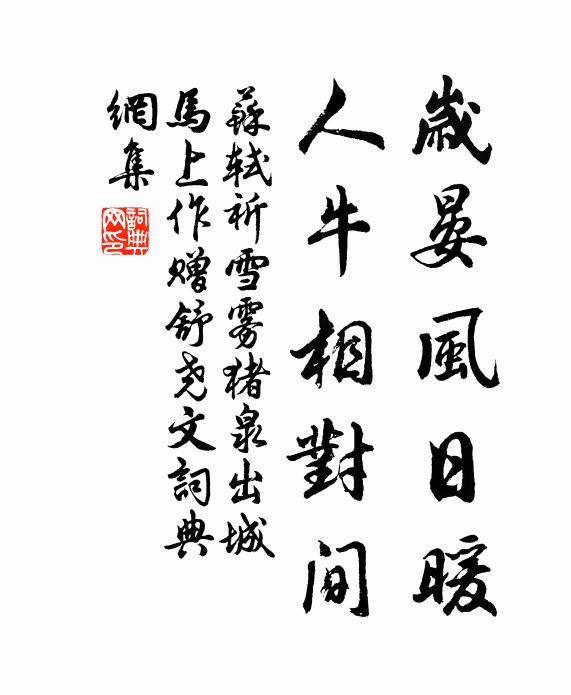 歲晏風日暖
人牛相對間
蘇軾祈雪雾猪泉出城
馬上作赠舒尧文詞典
網集
詞典網印